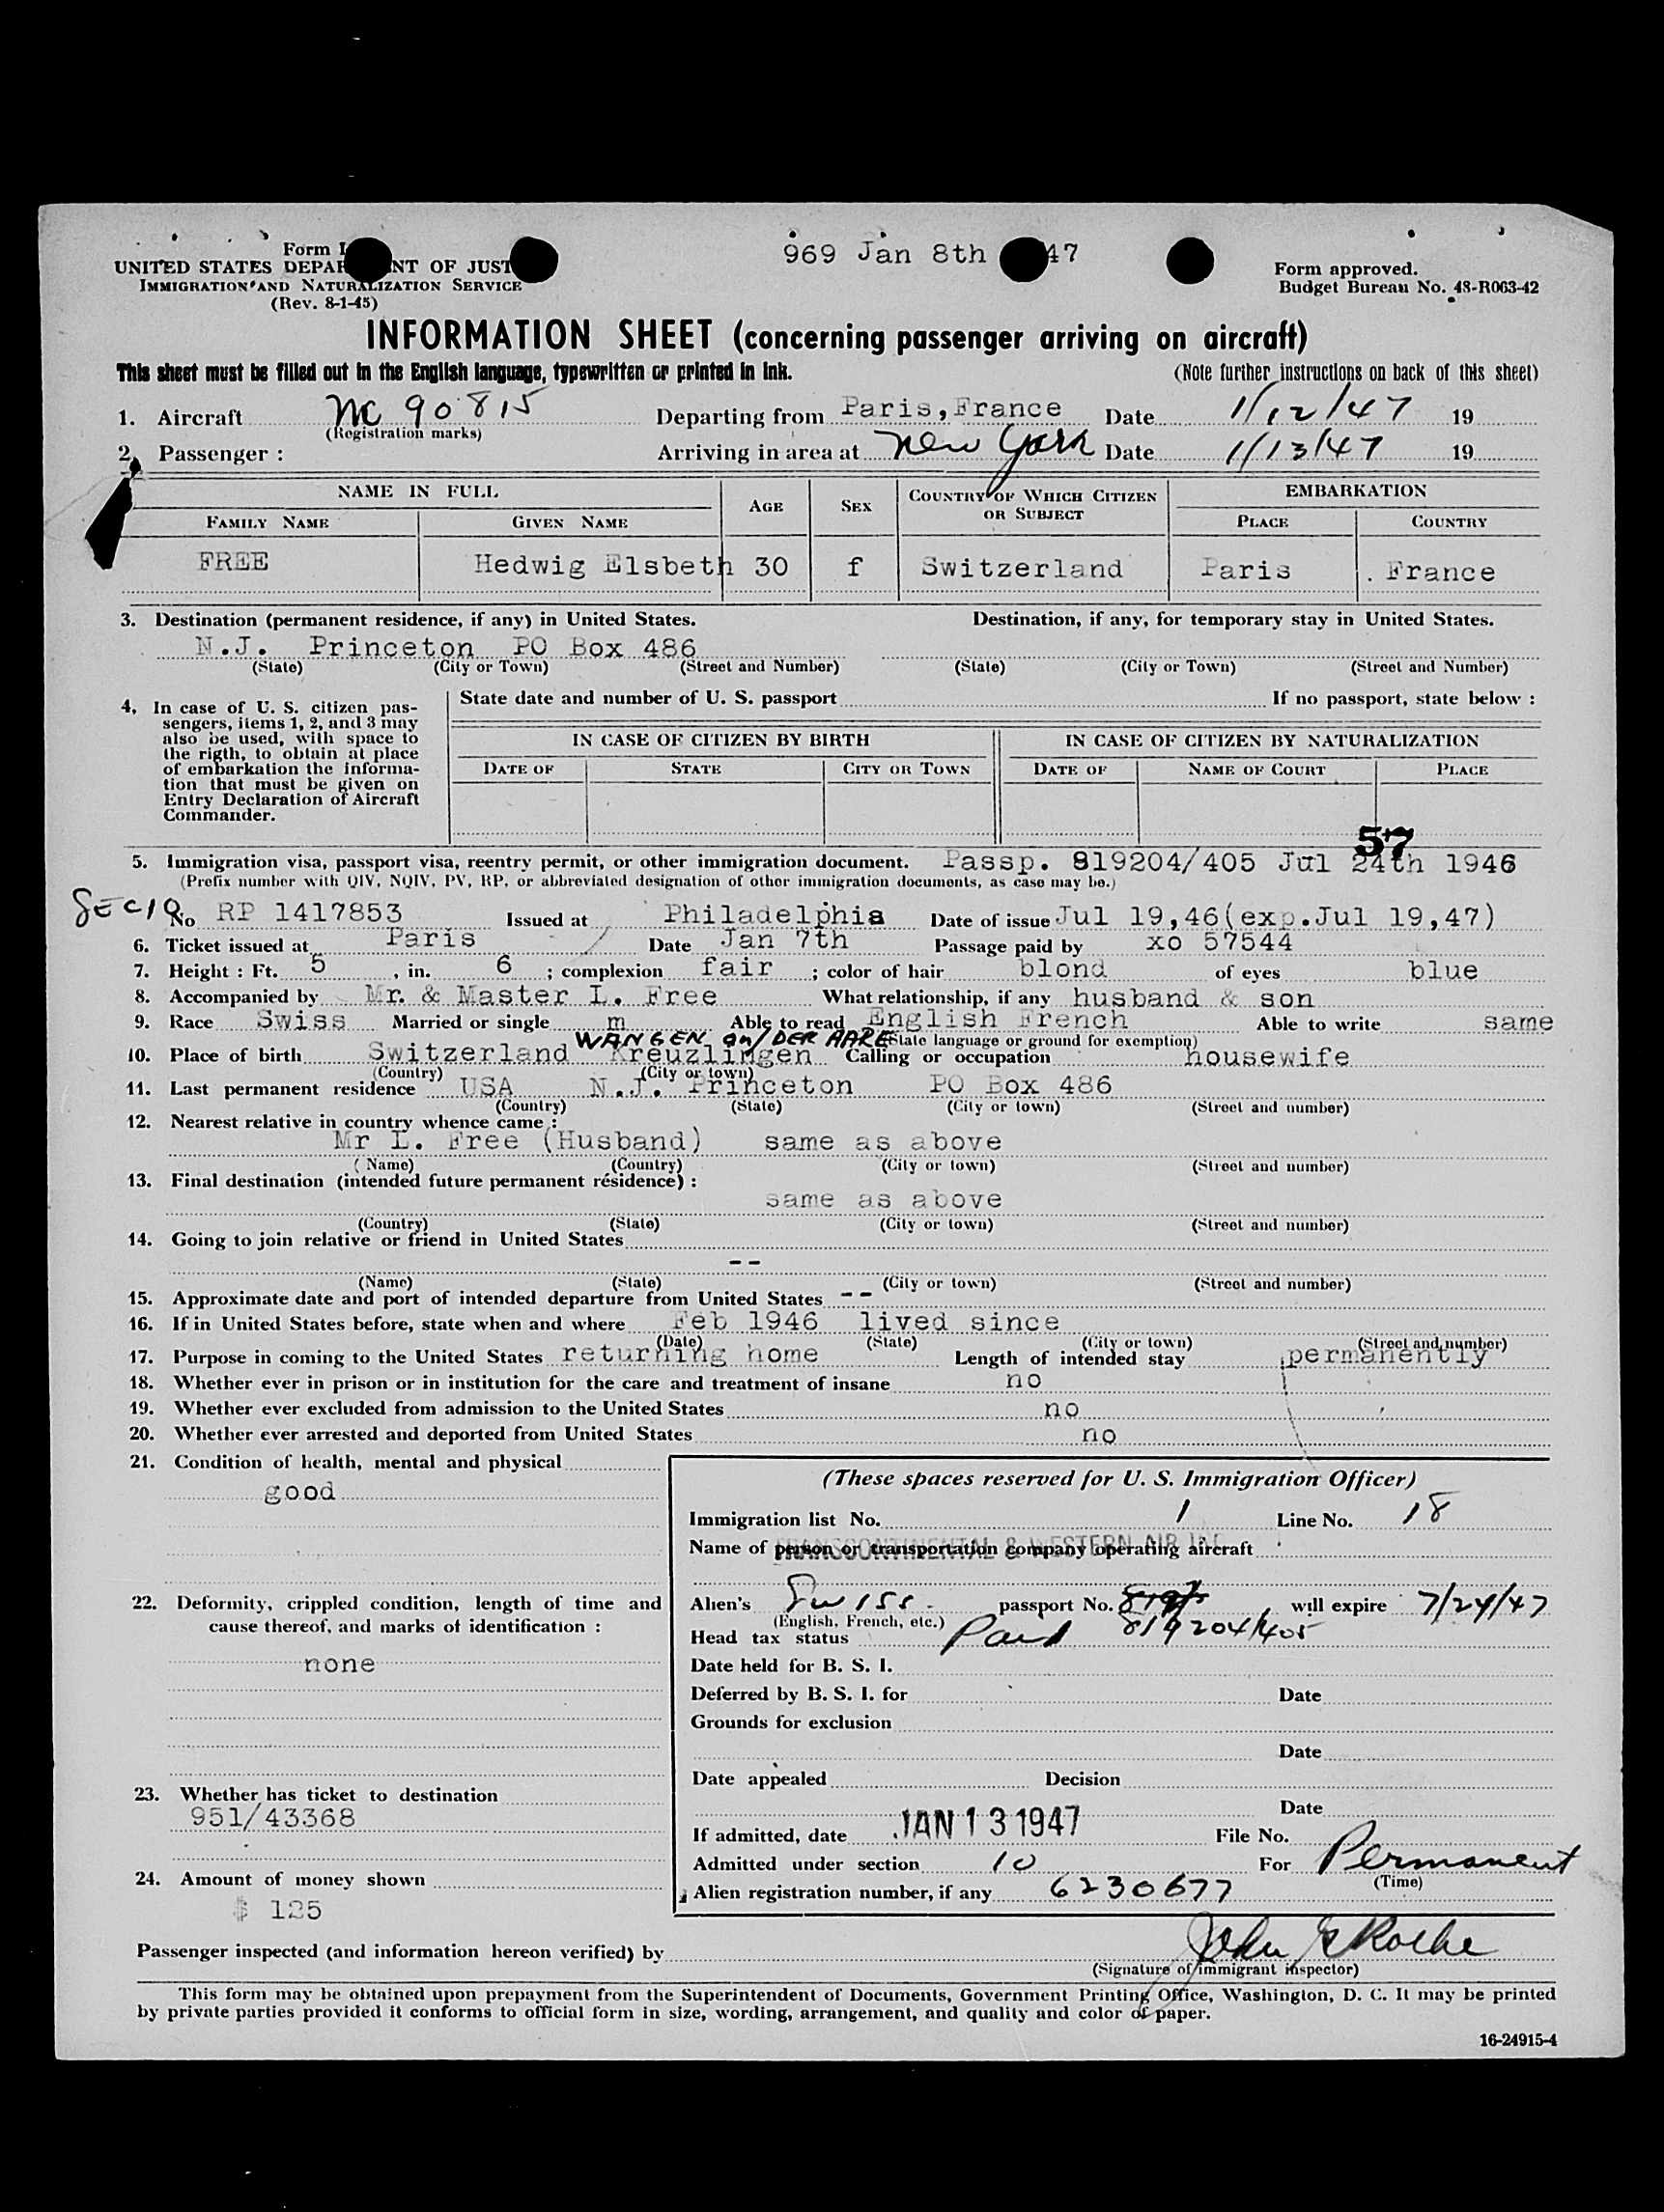 Form I
969 Jan 8th 47
UNITED STATES DEPAR NT OF JUST
IMMIGRATION AND NATURALIZATION SERVICE
(Rev. 8-1-45)
Form approved.
Budget Bureau No. 43-R063-42
INFORMATION SHEET (concerning passenger arriving on aircraft)
This sheet must be filled out in the English language, typewritten or printed in ink. (Note further instructions on back of this sheet)
1. Aircraft NC 90815 Departing from Paris, France Date 1/12/47 19
(Registration marks)
2. Passenger : Arriving in area at New York Date 1/13/47 19
NAME IN FULL AGE SEX COUNTRY OF WHICH CITIZEN OR SUBJECT EMBARKATION
FAMILY NAME GIVEN NAME PLACE COUNTRY
FREE Hedwig Elsbeth 30 f Switzerland Paris France
3. Destination (permanent residence, if any) in United States. Destination, if any, for temporary stay in United States.
N.J. Princeton PO Box 486
(State) (City or Town) (Street and Number) (State) (City or Town) (Street and Number)
4. In case of U. S. citizen pas-
sengers, items 1, 2, and 3 may
also be used, with space to
the rigth, to obtain at place
of embarkation the informa-
tion that must be given on
Entry Declaration of Aircraft
Commander.
State date and number of U. S. passport If no passport, state below :
IN CASE OF CITIZEN BY BIRTH IN CASE OF CITIZEN BY NATURALIZATION
DATE OF STATE CITY OR TOWN DATE OF NAME OF COURT PLACE
57
5. Immigration visa, passport visa, reentry permit, or other immigration document. Passp. 819204/405 Jul 24th 1946
(Prefix number with QIV, NQIV, PV, RP, or abbreviated designation of other immigration documents, as case may be.)
SEC 10 No RP 1417853 Issued at Philadelphia Date of issue Jul 19,46(exp.Jul 19,47)
6. Ticket issued at Paris Date Jan 7th Passage paid by xo 57544
7. Height : Ft. 5 , in. 6 ; complexion fair ; color of hair blond of eyes blue
8. Accompanied by Mr. & Master L. Free What relationship, if any husband & son
9. Race Swiss Married or single m Able to read English French Able to write same
WANGEN an/DER AARE (State language or ground for exemption)
10. Place of birth Switzerland Kreuzlingen Calling or occupation housewife
(Country) (City or town)
11. Last permanent residence USA N.J. Princeton PO Box 486
(Country) (State) (City or town) (Street and number)
12. Nearest relative in country whence came :
Mr L. Free (Husband) same as above
(Name) (Country) (City or town) (Street and number)
13. Final destination (intended future permanent résidence) :
same as above
(Country) (State) (City or town) (Street and number)
14. Going to join relative or friend in United States
--
(Name) (State) (City or town) (Street and number)
15. Approximate date and port of intended departure from United States --
16. If in United States before, state when and where Feb 1946 lived since
(Date) (State) (City or town) (Street and number)
17. Purpose in coming to the United States returning home Length of intended stay permanently
18. Whether ever in prison or in institution for the care and treatment of insane no
19. Whether ever excluded from admission to the United States no
20. Whether ever arrested and deported from United States no
21. Condition of health, mental and physical
good
22. Deformity, crippled condition, length of time and
cause thereof, and marks of identification :
none
23. Whether has ticket to destination
951/43368
24. Amount of money shown
$ 125
(These spaces reserved for U. S. Immigration Officer)
Immigration list No. 1 Line No. 18
Name of person or transportation company operating aircraft
TRANSCONTINENTAL & WESTERN AIR INC
Alien's Swiss. passport No. 819204/405 will expire 7/24/47
(English, French, etc.)
Head tax status Paid
Date held for B. S. I.
Deferred by B. S. I. for Date
Grounds for exclusion
Date
Date appealed Decision
Date
If admitted, date JAN 13 1947 File No.
Admitted under section 10 For Permanent
(Time)
Alien registration number, if any 6230677
Passenger inspected (and information hereon verified) by John
(Signature of immigrant inspector)
This form may be obtained upon prepayment from the Superintendent of Documents, Government Printing Office, Washington, D. C. It may be printed
by private parties provided it conforms to official form in size, wording, arrangement, and quality and color of paper.
16-24915-4